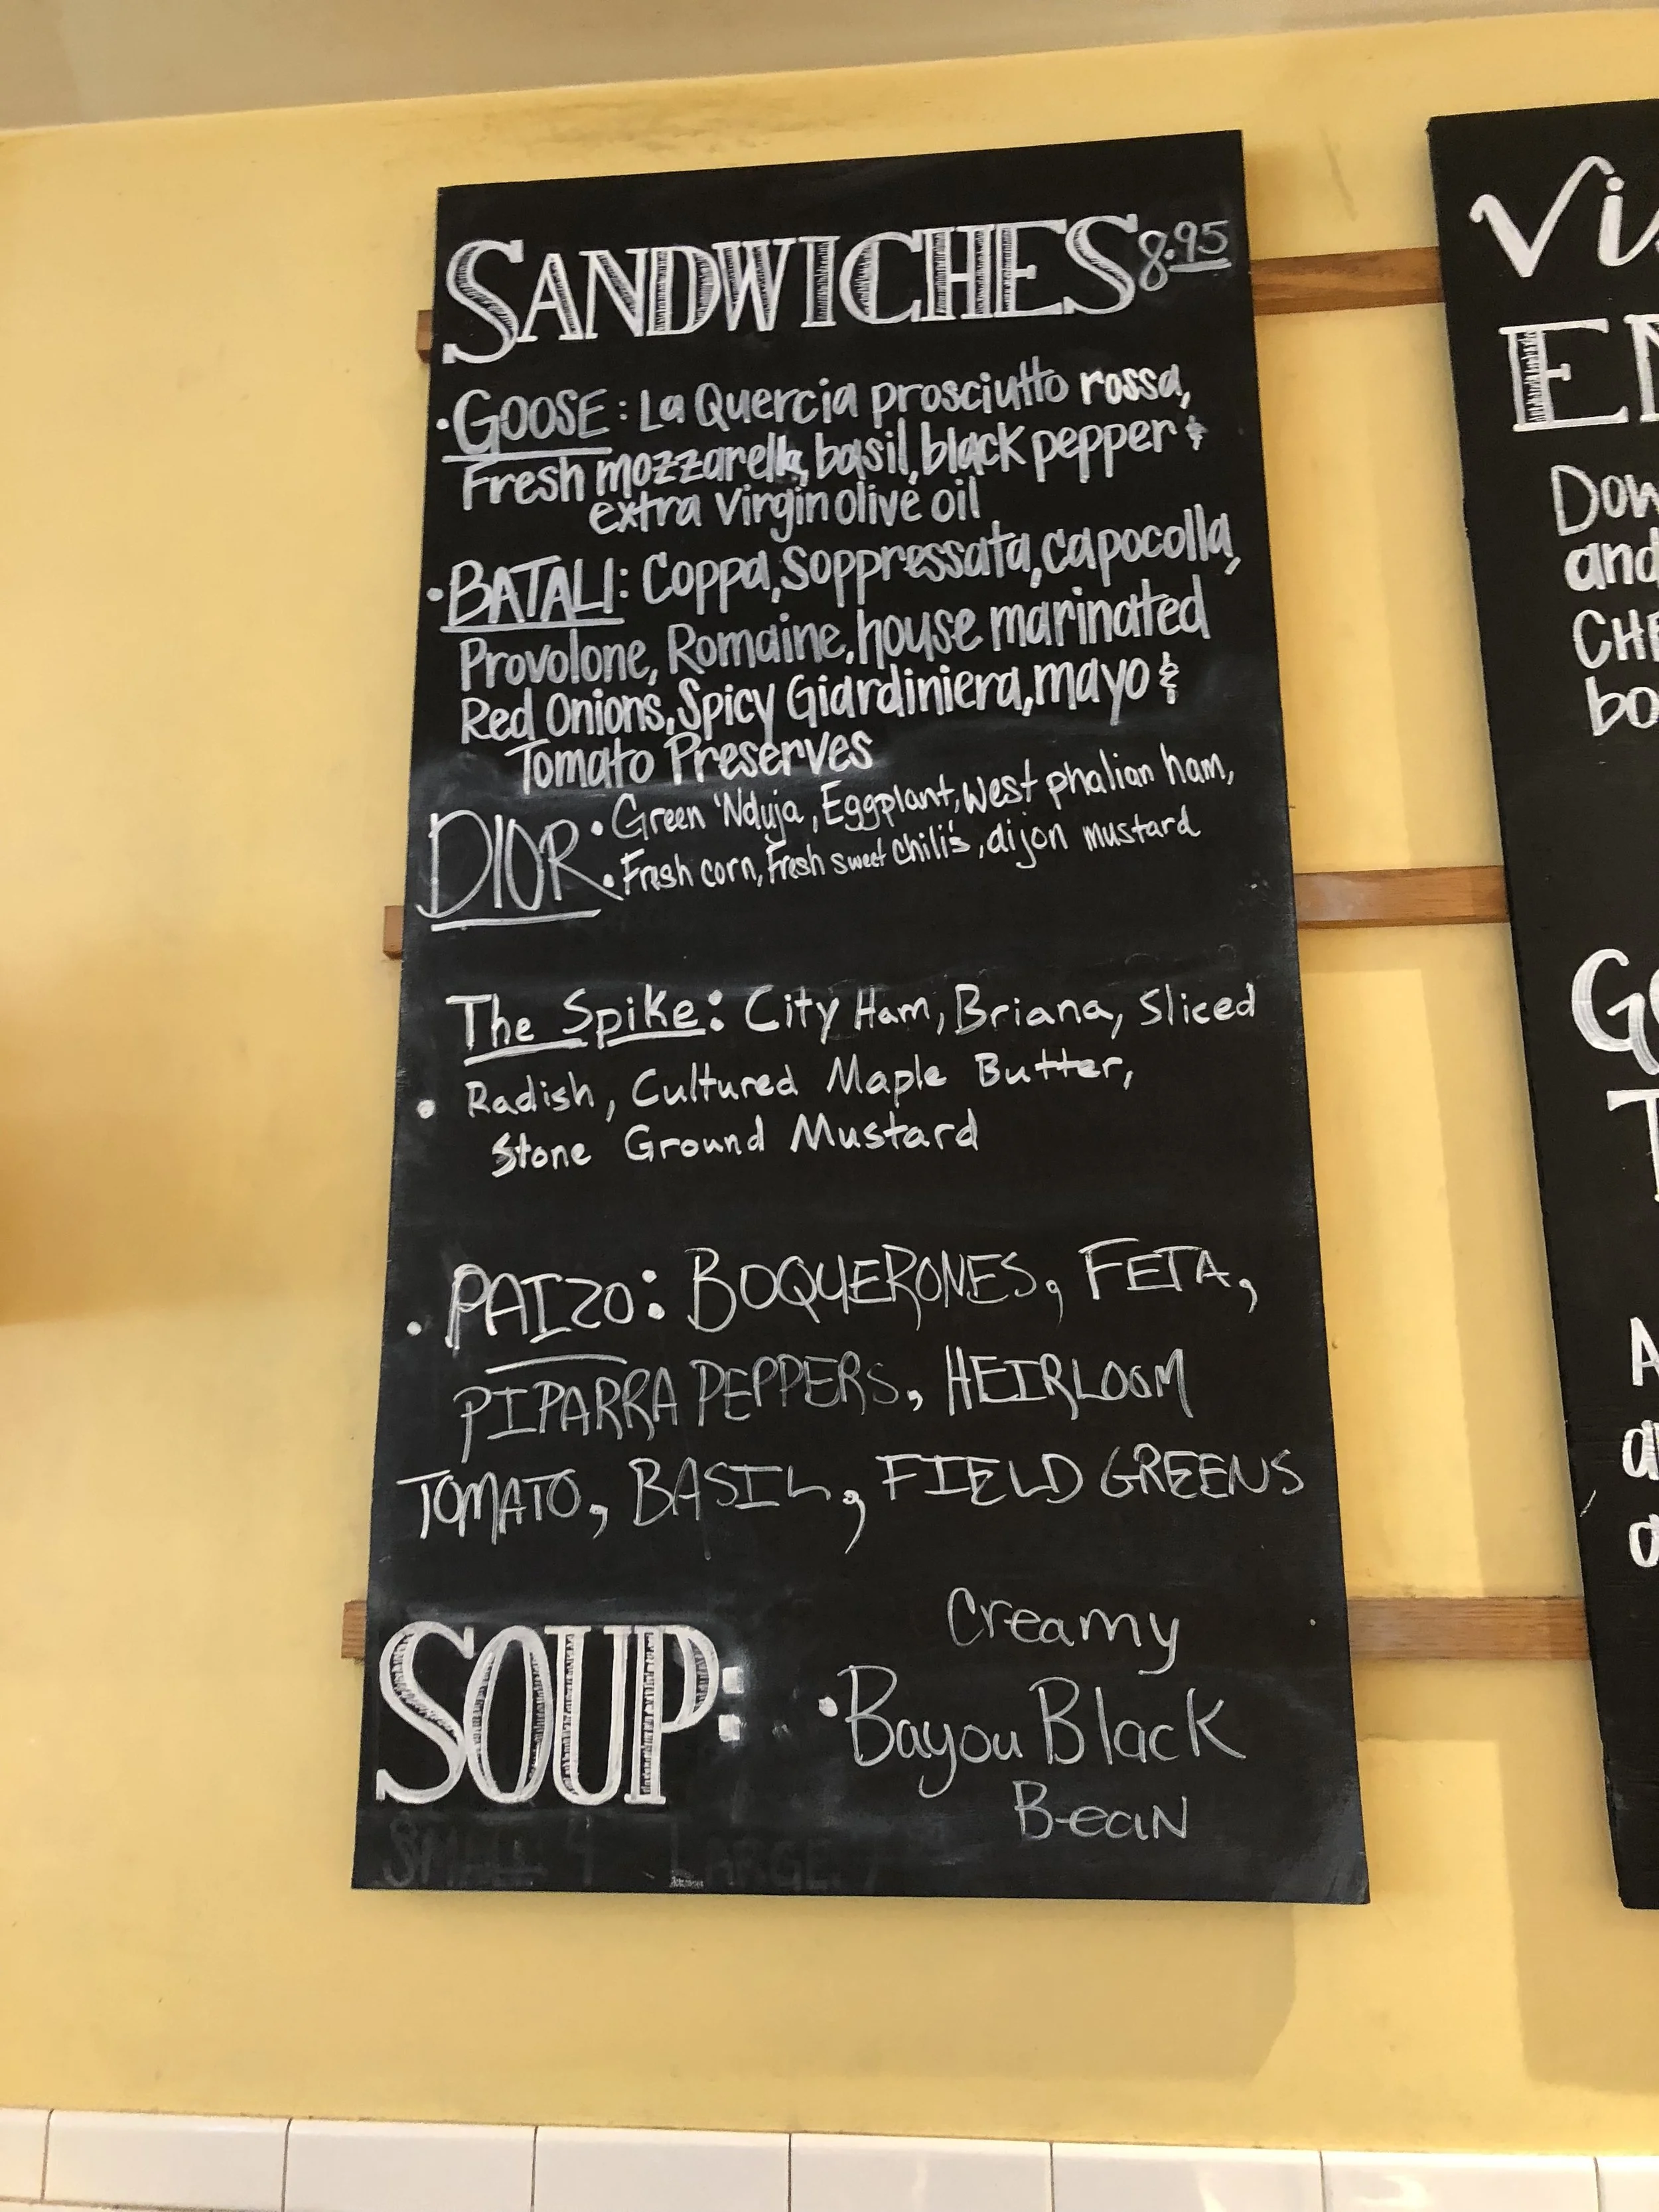 SANDWICHES 8.95
• GOOSE: La Quercia prosciutto rossa,
Fresh mozzarella, basil, black pepper &
extra virgin olive oil
• BATALI: Coppa, Soppressata, capocolla,
Provolone, Romaine, house marinated
Red Onions, Spicy Giardiniera, mayo &
Tomato Preserves
DIOR • Green 'Nduja, Eggplant, West phalian ham,
• Fresh corn, Fresh sweet chili's, dijon mustard
The Spike: City Ham, Briana, Sliced
• Radish, Cultured Maple Butter,
Stone Ground Mustard
• PAIZO: BOQUERONES, FETA,
PIPARRA PEPPERS, HEIRLOOM
TOMATO, BASIL, FIELD GREENS
SOUP:
Creamy
• Bayou Black
Bean
SMALL 4 LARGE 7
Vi
EN
Dow
and
CHE
bo
GO
T
A
a